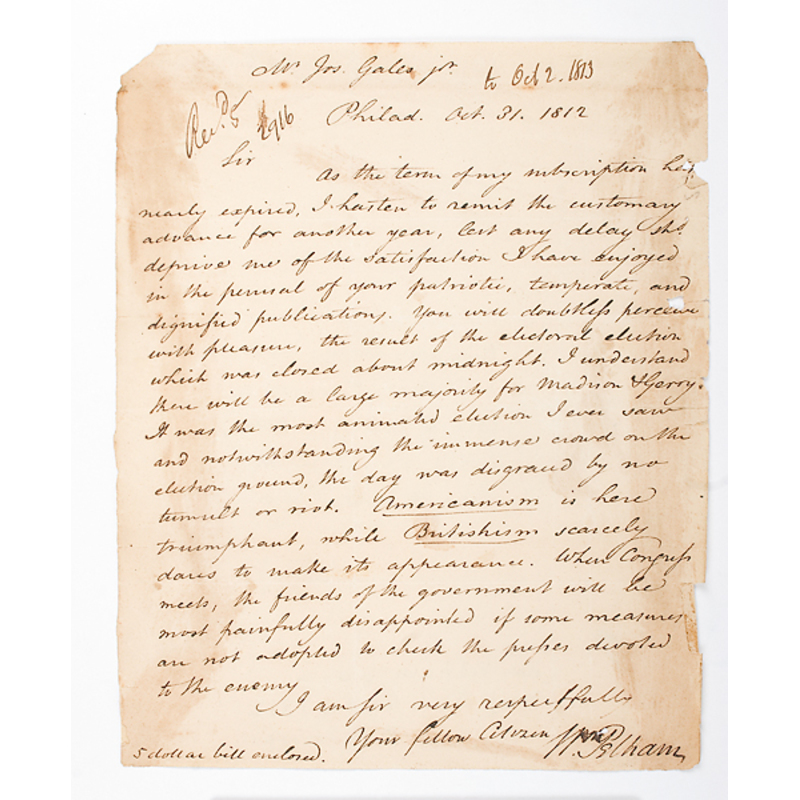 Mr. Jos. Gales jr.
to Oct 2. 1813
Recd. 5
2916
Philad. Oct. 31. 1812
Sir
As the term of my subscription has
nearly expired, I hasten to remit the customary
advance for another year, lest any delay shd.
deprive me of the satisfaction I have enjoyed
in the perusal of your patriotic, temperate, and
dignified publications. You will doubtless perceive
with pleasure, the result of the electoral election
which was closed about midnight. I understand
there will be a large majority for Madison & Gerry.
It was the most animated election I ever saw
and notwithstanding the immense crowd on the
election ground, the day was disgraced by no
tumult or riot. Americanism is here
triumphant, while Britishism scarcely
dares to make its appearance. When Congress
meets, the friends of the government will be
most painfully disappointed if some measures
are not adopted to check the presses devoted
to the enemy
I am sir very respectfully
Your fellow Citizen Wm Pelham
5 dollar bill enclosed.